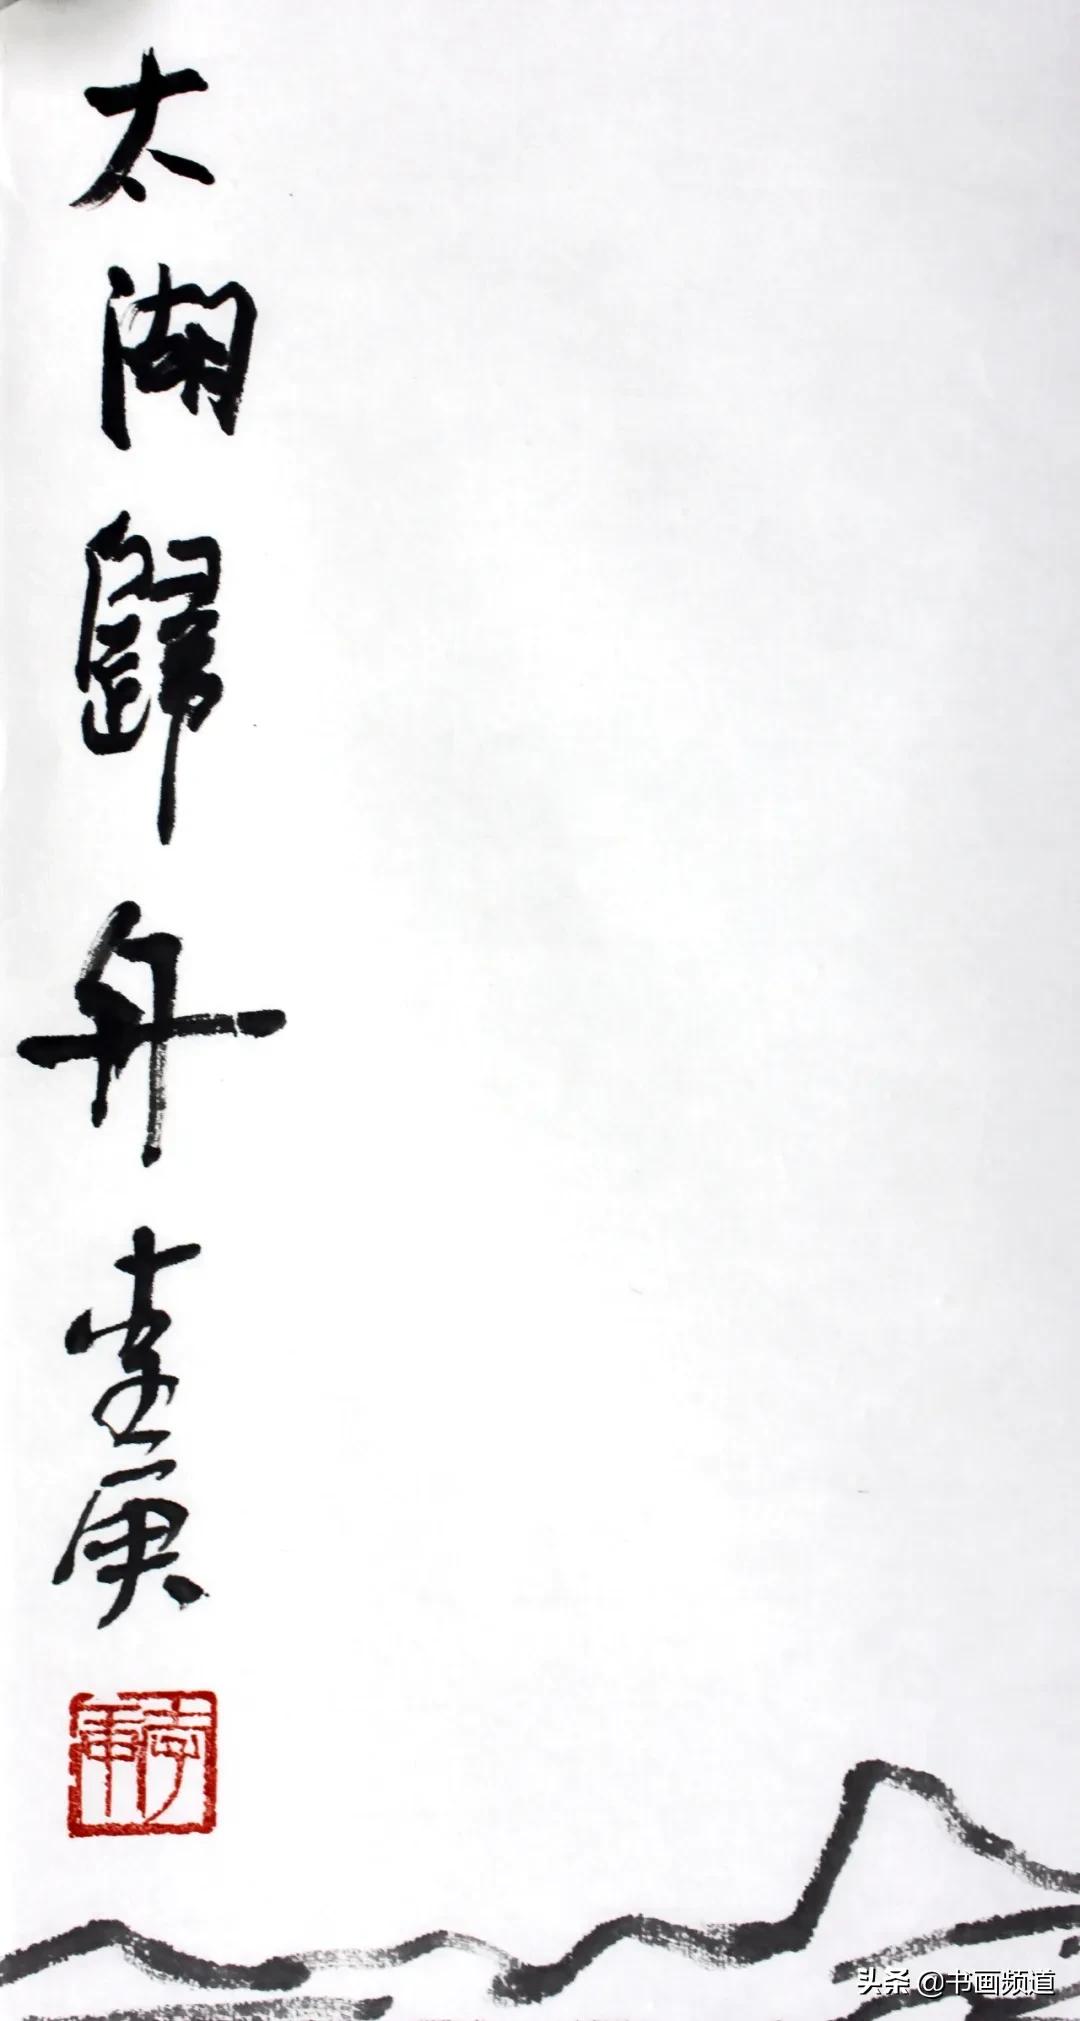 太湖歸舟李庚
李庚
头条 @书画频道